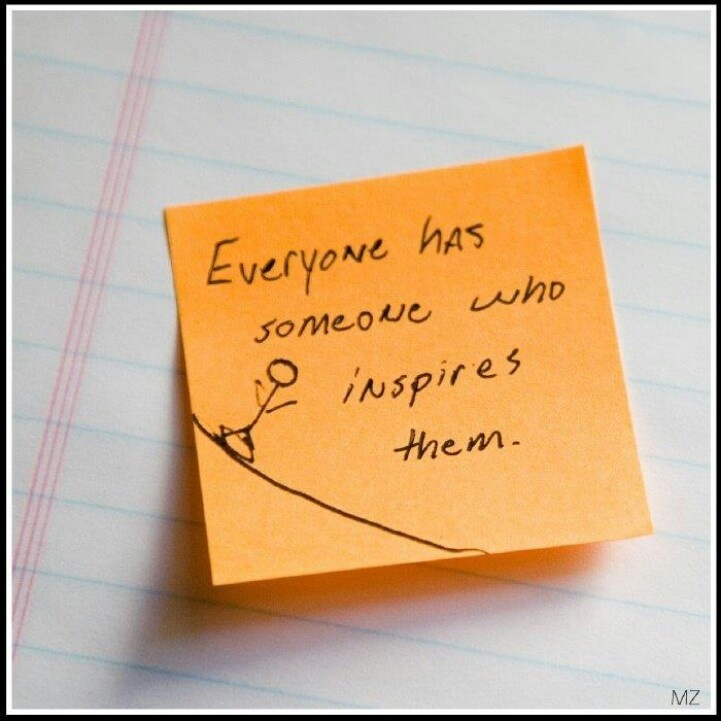 Everyone has
someone who
inspires
them.
MZ